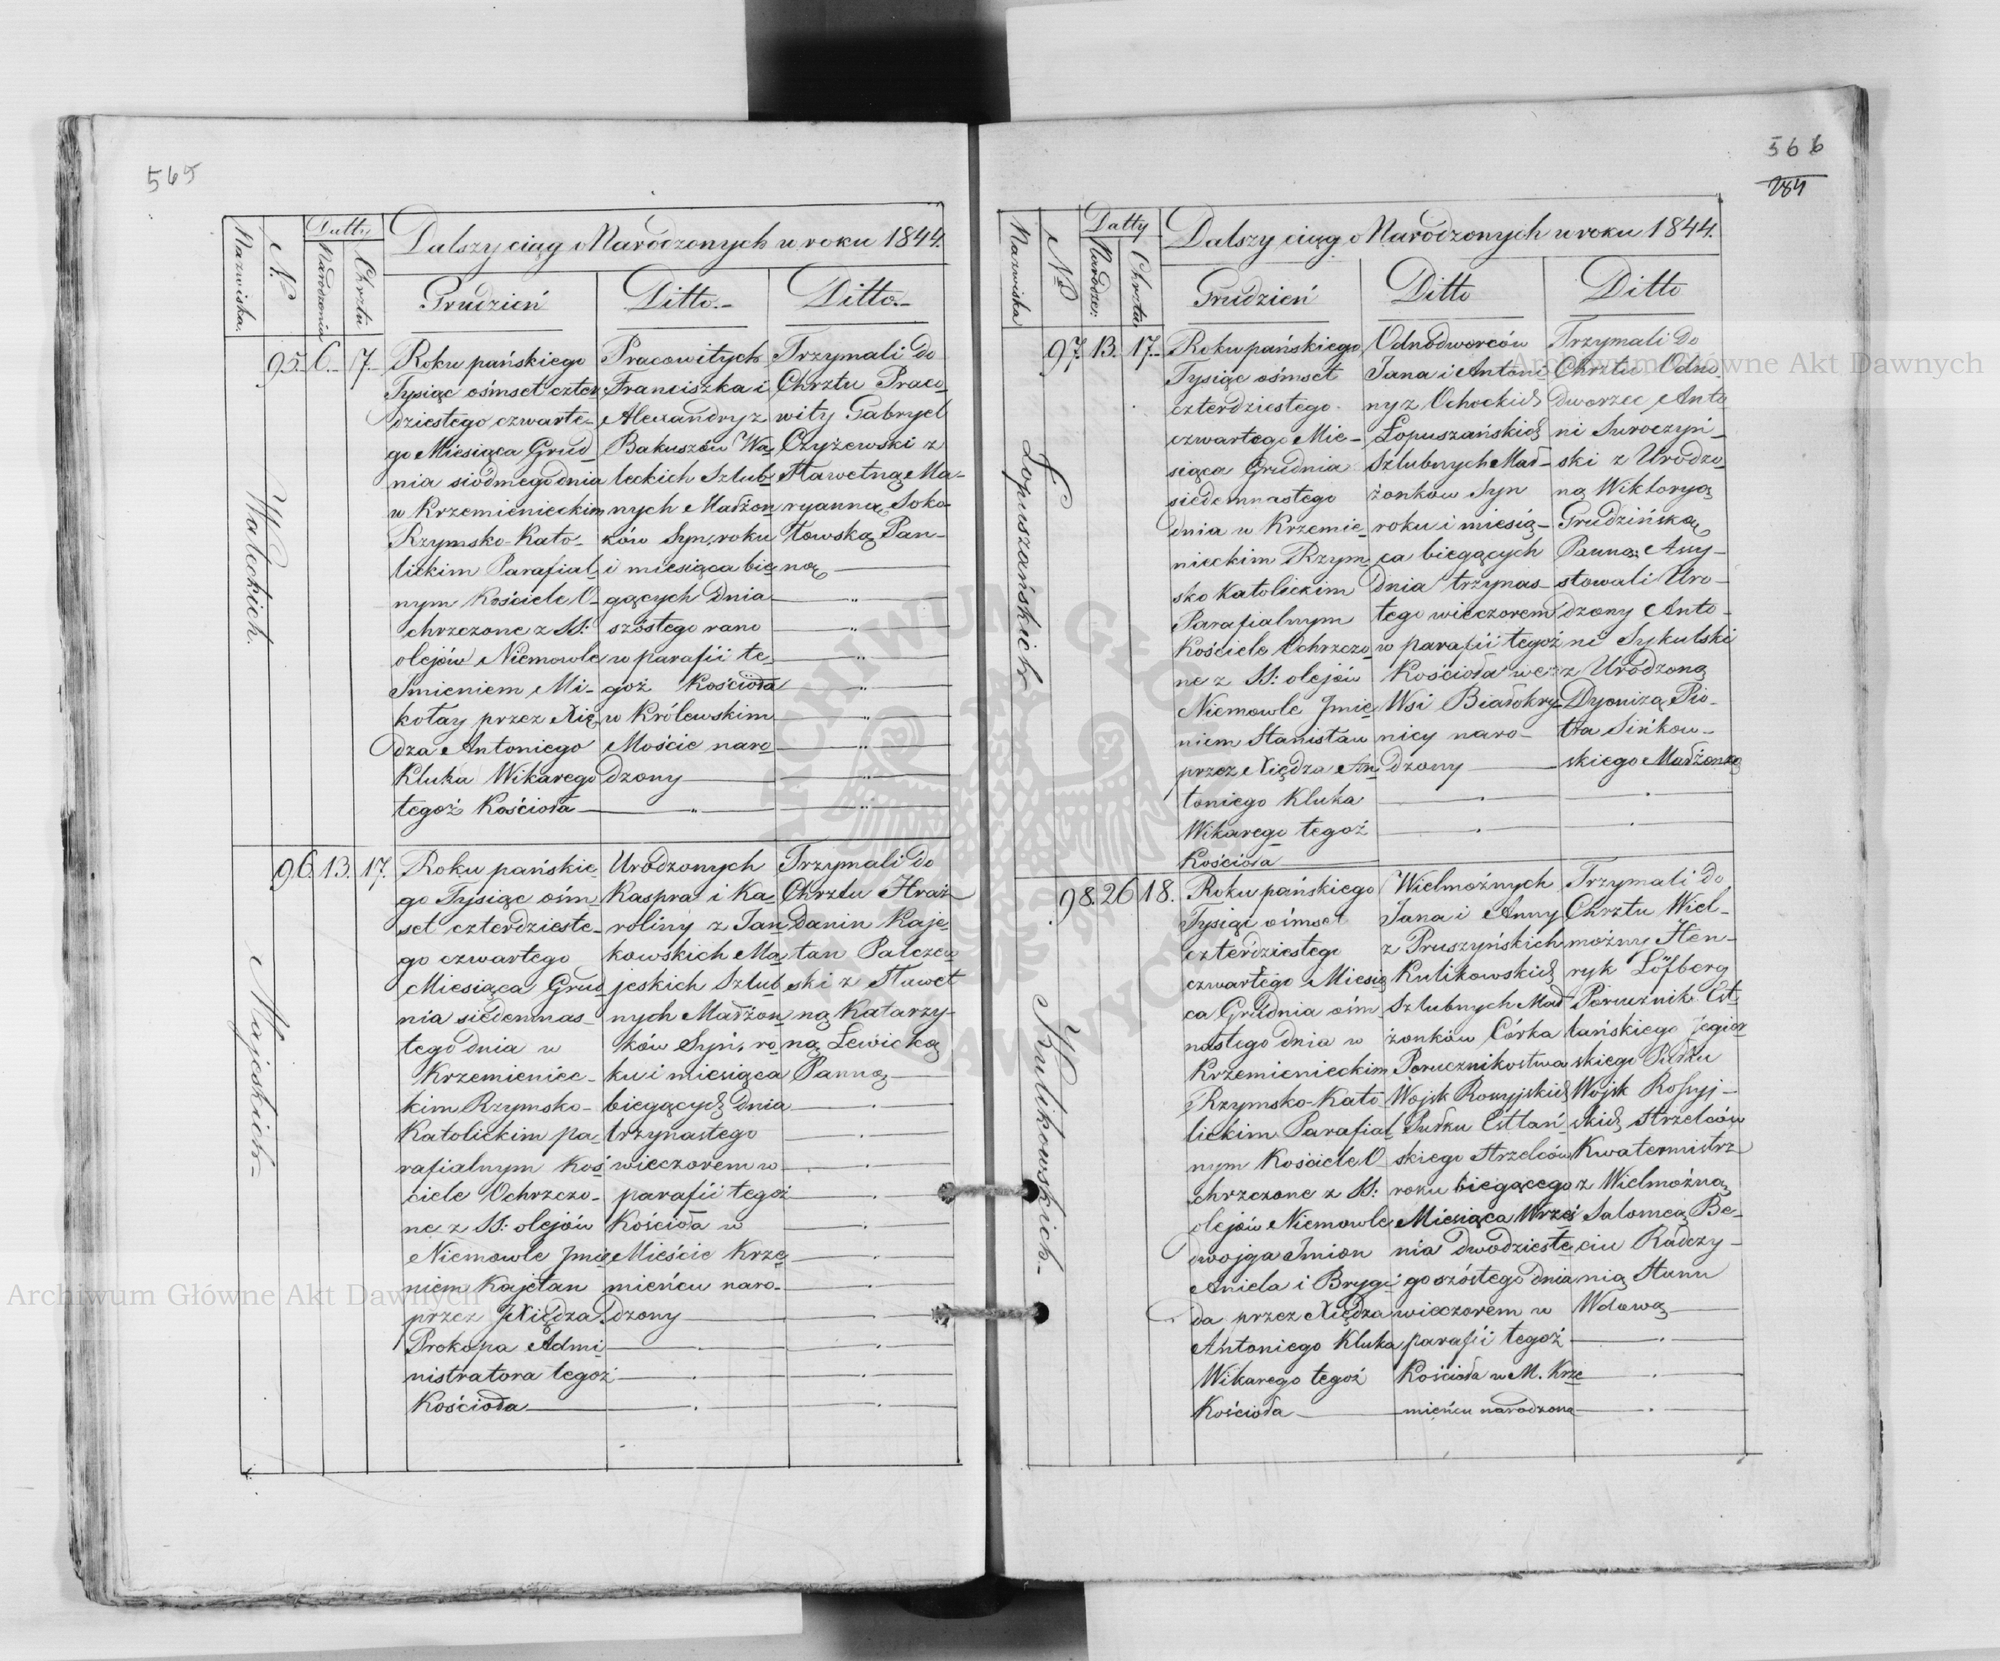 565
Dalszy ciąg o Narodzonych w roku 1844.
Nazwiska.
N.
Datty
Narodzenia
Chrztu
Grudzień
Ditto.-
Ditto.-
Walechich.
95. 6. 7.
Roku pańskiego
Tysiąc ośmset czter
dziestego czwarte-
go Miesiąca Grud-
nia siódmego dnia
w Krzemienieckim
Rzymsko-Kato-
lickim Parafial-
nym Kościele O-
chrzczone z SS:
olejów Niemowle
Imieniem Mi-
kołay przez Xię-
dza Antoniego
Kluka Wikarego
tegoż Kościoła
Pracowitych
Franciszka i
Alexandry z
Bakuszów Wa-
leckich Szlub-
nych Małżon
ków Syn, roku
i miesiąca bie-
gących dnia
szóstego rano
w parafii te-
goż Kościoła
w Królewskim
Moście naro-
dzony
Trzymali do
Chrztu Praco-
wity Gabryel
Czyżewski z
Sławetną Ma-
ryanną Soko-
łowską Pan-
ną
Majeskich-
96. 13. 17.
Roku pańskie-
go Tysiąc ośm-
set czterdzieste-
go czwartego
Miesiąca Grud-
nia siedemnas-
tego dnia w
Krzemieniec-
kim Rzymsko-
Katolickim pa-
rafialnym Koś-
ciele Ochrzczo-
ne z SS: olejów
Niemowle Imie
niem Kajetan
przez JXiędza
Prokopa Admi-
nistratora tegoż
Kościoła
Urodzonych
Kaspra i Ka-
roliny z Jan
kowskich Ma-
jeskich Szlub-
nych Małżon-
ków Syn, ro-
ku i miesiąca
biegących dnia
trzynastego
wieczorem w
parafii tegoż
Kościoła w
Mieście Krze-
mieńcu naro-
dzony
Trzymali do
Chrztu Hraż-
danin Kaje-
tan Palczew-
ski z Sławet
ną Katarzy-
ną Lewicką
Panną
566
284
Dalszy ciąg o Narodzonych w roku 1844.
Nazwiska
No
Datty
Narodze:
Chrztu
Grudzień
Ditto
Ditto
Łopuszańskich
97. 13. 17.-
Roku pańskiego
Tysiąc ośmset
czterdziestego
czwartego Mie-
siąca Grudnia
siedemnastego
dnia w Krzemie-
nieckim Rzym-
sko Katolickim
Parafialnym
Kościele Ochrzczo-
ne z SS: olejów
Niemowle Imie-
niem Stanisław
przez Xiędza An-
toniego Kluka
Wikarego tegoż
Kościoła
Odnodworców
Jana i Antoni-
ny z Ochockich
Łopuszańskich
Szlubnych Mał-
żonków Syn
roku i miesią-
ca biegących
dnia trzynas-
tego wieczorem
w parafii tegoż
Kościoła we
Wsi Białokry-
nicy naro-
dzony
Trzymali do
Chrztu Odno-
dworzec Anto
ni Suroczyń-
ski z Urodzo-
ną Wiktoryą
Grudzińską
Panną Assy-
stowali Uro-
dzony Anto-
ni Sykulski
z Urodzoną
Dyonizą Pio-
tra Sińkow-
skiego Małżonką
Kulikowskich-
98. 26 18.
Roku pańskiego
Tysiąc ośmset
czterdziestego
czwartego Miesią
ca Grudnia ośm-
nastego dnia w
Krzemienieckim
Rzymsko-Kato-
lickim Parafial
nym Kościele O-
chrzczone z SS:
olejów Niemowle
dwojga Imion
Aniela i Brygi-
da przez Xiędza
Antoniego Kluka
Wikarego tegoż
Kościoła
Wielmożnych
Jana i Anny
z Pruszyńskich
Kulikowskich
Szlubnych Mał
żonków Córka
Porucznikostwa
Wojsk Rossyjskich
Pułku Estlań-
skiego Strzelców
roku biegącego
Miesiąca Wrześ-
nia dwudzieste-
go szóstego dnia
wieczorem w
parafii tegoż
Kościoła w M. Krze-
mieńcu narodzona
Trzymali do
Chrztu Wiel-
możny Hen-
ryk Löfberg
Porucznik Est-
lańskiego Jegier
skiego Pułku
Wojsk Rossyj-
skich Strzelców
Kwatermistrz
z Wielmożną
Salomeą Be-
ciu Radczy-
nią Stanu
Wdową
Archiwum Główne Akt Dawnych
Archiwum Główne Akt Dawnych